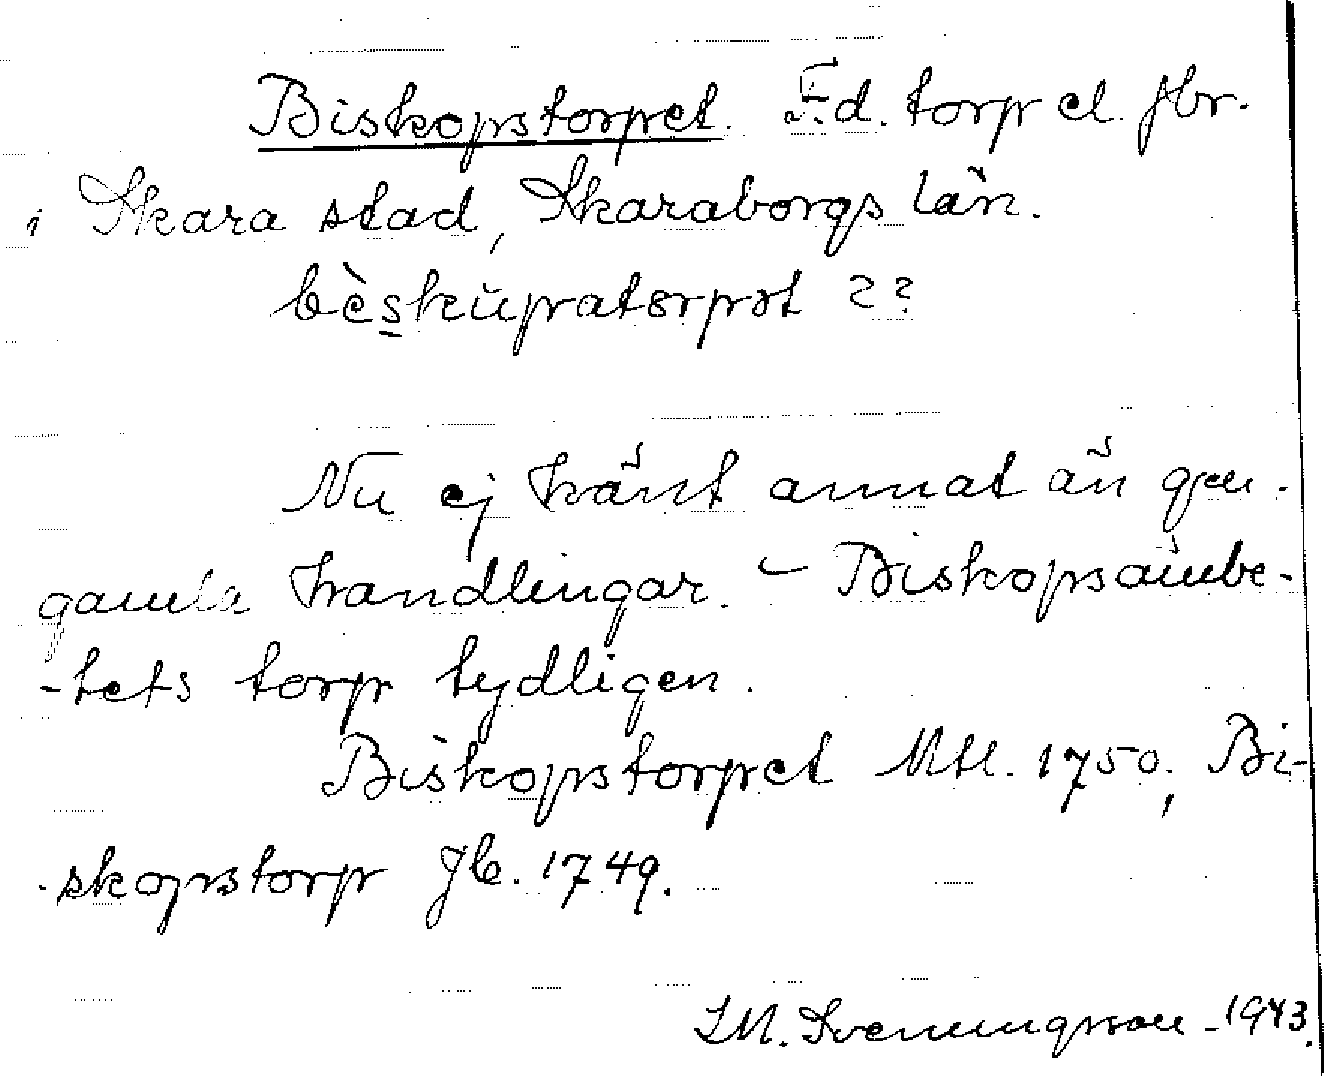 Biskopstorpet. F.d. torp el. jbr.
i Skara stad, Skaraborgs län.
bèskŭpatorpət ??
Nu ej känt annat än gm.
gamla handlingar. – Biskopsämbe-
-tets torp tydligen.
Biskopstorpet Mtl. 1750, Bi-
-skopstorp Jb. 1749.
I.M. Svenungsson -1943.